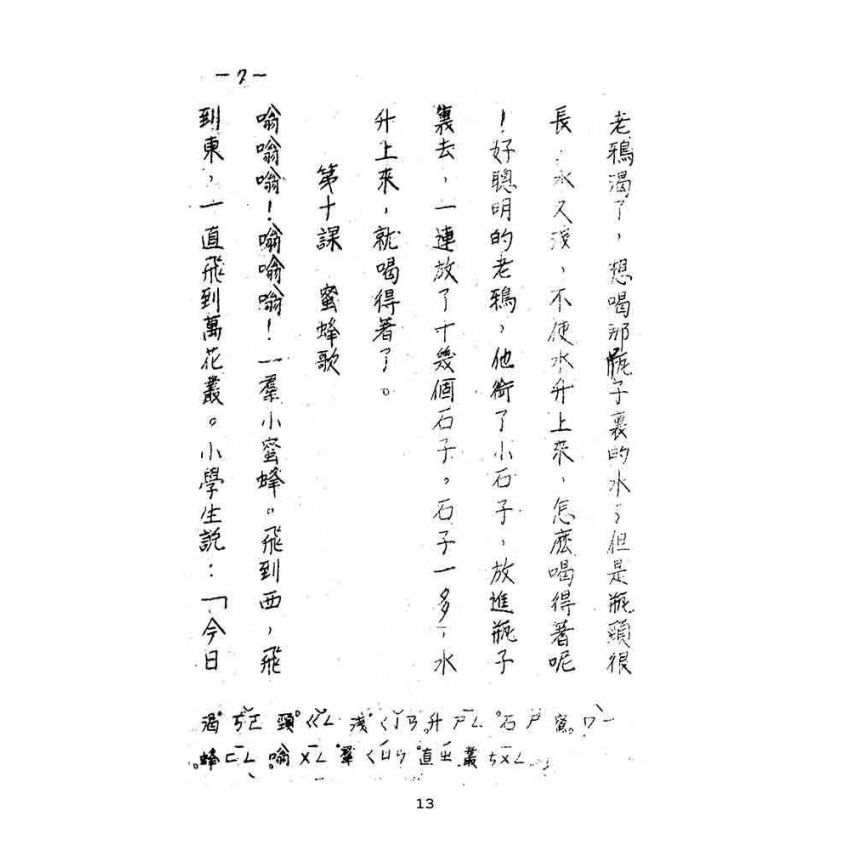 －7－
老鴉渴了，想喝那瓶子裏的水；但是瓶頸很
長，水又淺，不使水升上來，怎麼喝得著呢
！好聰明的老鴉，他銜了小石子，放進瓶子
裏去，一連放了十幾個石子。石子一多，水
升上來，就喝得著了。
第十課　蜜蜂歌
嗡嗡嗡！嗡嗡嗡！一羣小蜜蜂。飛到西，飛
到東，一直飛到萬花叢。小學生說：「今日
渴 ㄎㄜˇ 頸 ㄍㄥ 淺 ㄑㄧㄢˇ 升 ㄕㄥ 石 ㄕ 蜜 ㄇㄧˋ
蜂 ㄈㄥ 嗡 ㄨㄥ 羣 ㄑㄩㄣ 直 ㄓ 叢 ㄘㄨㄥ
13